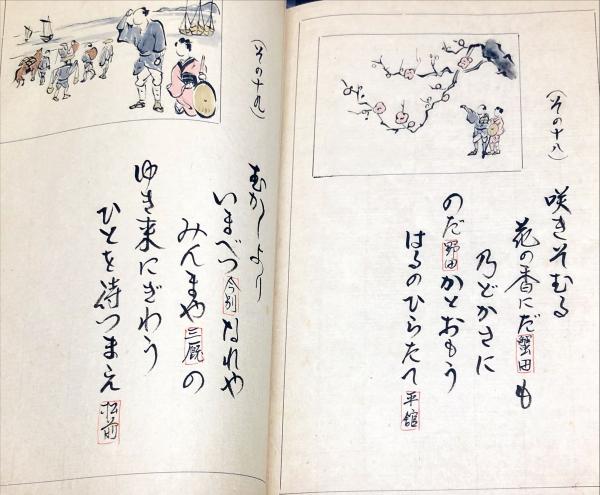 (その十八)
咲きそむる
花の香にだ蟹田も
乃どかさに
のだ野田かとおもう
はるのひらたて平舘
(その十九)
むかしより
いまべつ今別なれや
みんまや三厩の
ゆき来にぎわう
ひとを待つまえ松前